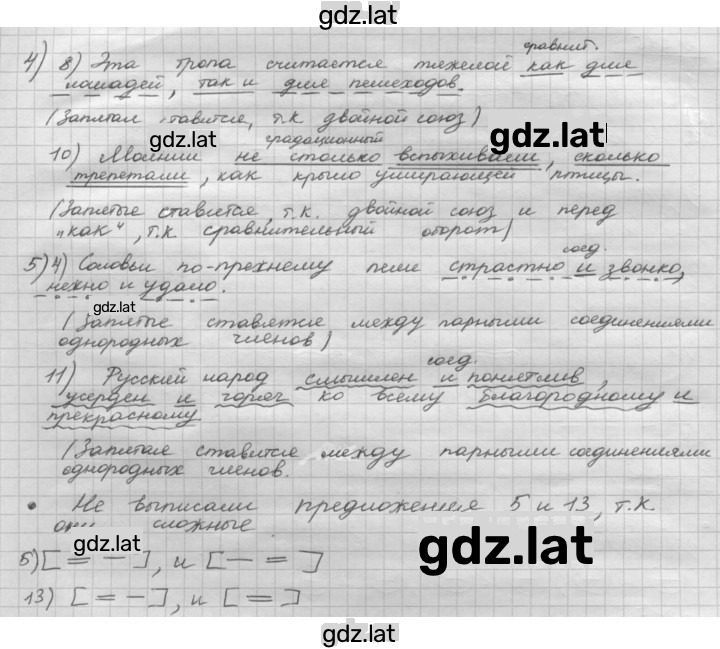 gdz.lat
сравнит.
4) 8) Эта тропа считается тяжелой как для
лошадей, так и для пешеходов.
(Запятая ставится, т.к двойной союз)
gdz.lat
gdz.lat
градационный
10) Молнии не столько вспыхивали, сколько
трепетали, как крыло умирающей птицы.
(Запятые ставятся, т.к. двойной союз и перед
"как", т.к сравнительный оборот)
соед.
5) 4) Соловьи по-прежнему пели страстно и звонко,
нежно и удало.
gdz.lat
(Запятые ставятся между парными соединениями
однородных членов)
соед.
11) Русский народ смышлен и понятлив,
усерден и горяч ко всему благородному и
прекрасному
(Запятая ставится между парными соединениями
однородных членов.
• Не выписали предложения 5 и 13, т.к.
они сложные
gdz.lat
gdz.lat
5) [= −], и [− =]
13) [= −], и [=]
gdz.lat